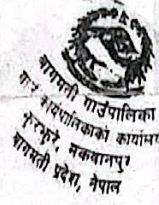 बागमती गाउँपालिका
गाउँ कार्यपालिकाको कार्यालय
मकवानपुर
बागमती प्रदेश, नेपाल